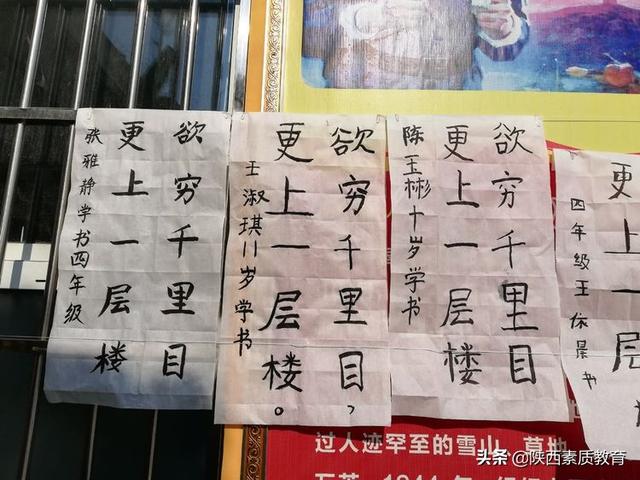 欲穷千里目
更上一层楼
张雅静学书四年级
欲穷千里目，
更上一层楼。
王淑琪11岁学书
欲穷千里目
更上一层楼
陈玉彬十岁学书
更上一层
四年级王
过人迹罕至的雪山、草地
头条 @陕西素质教育